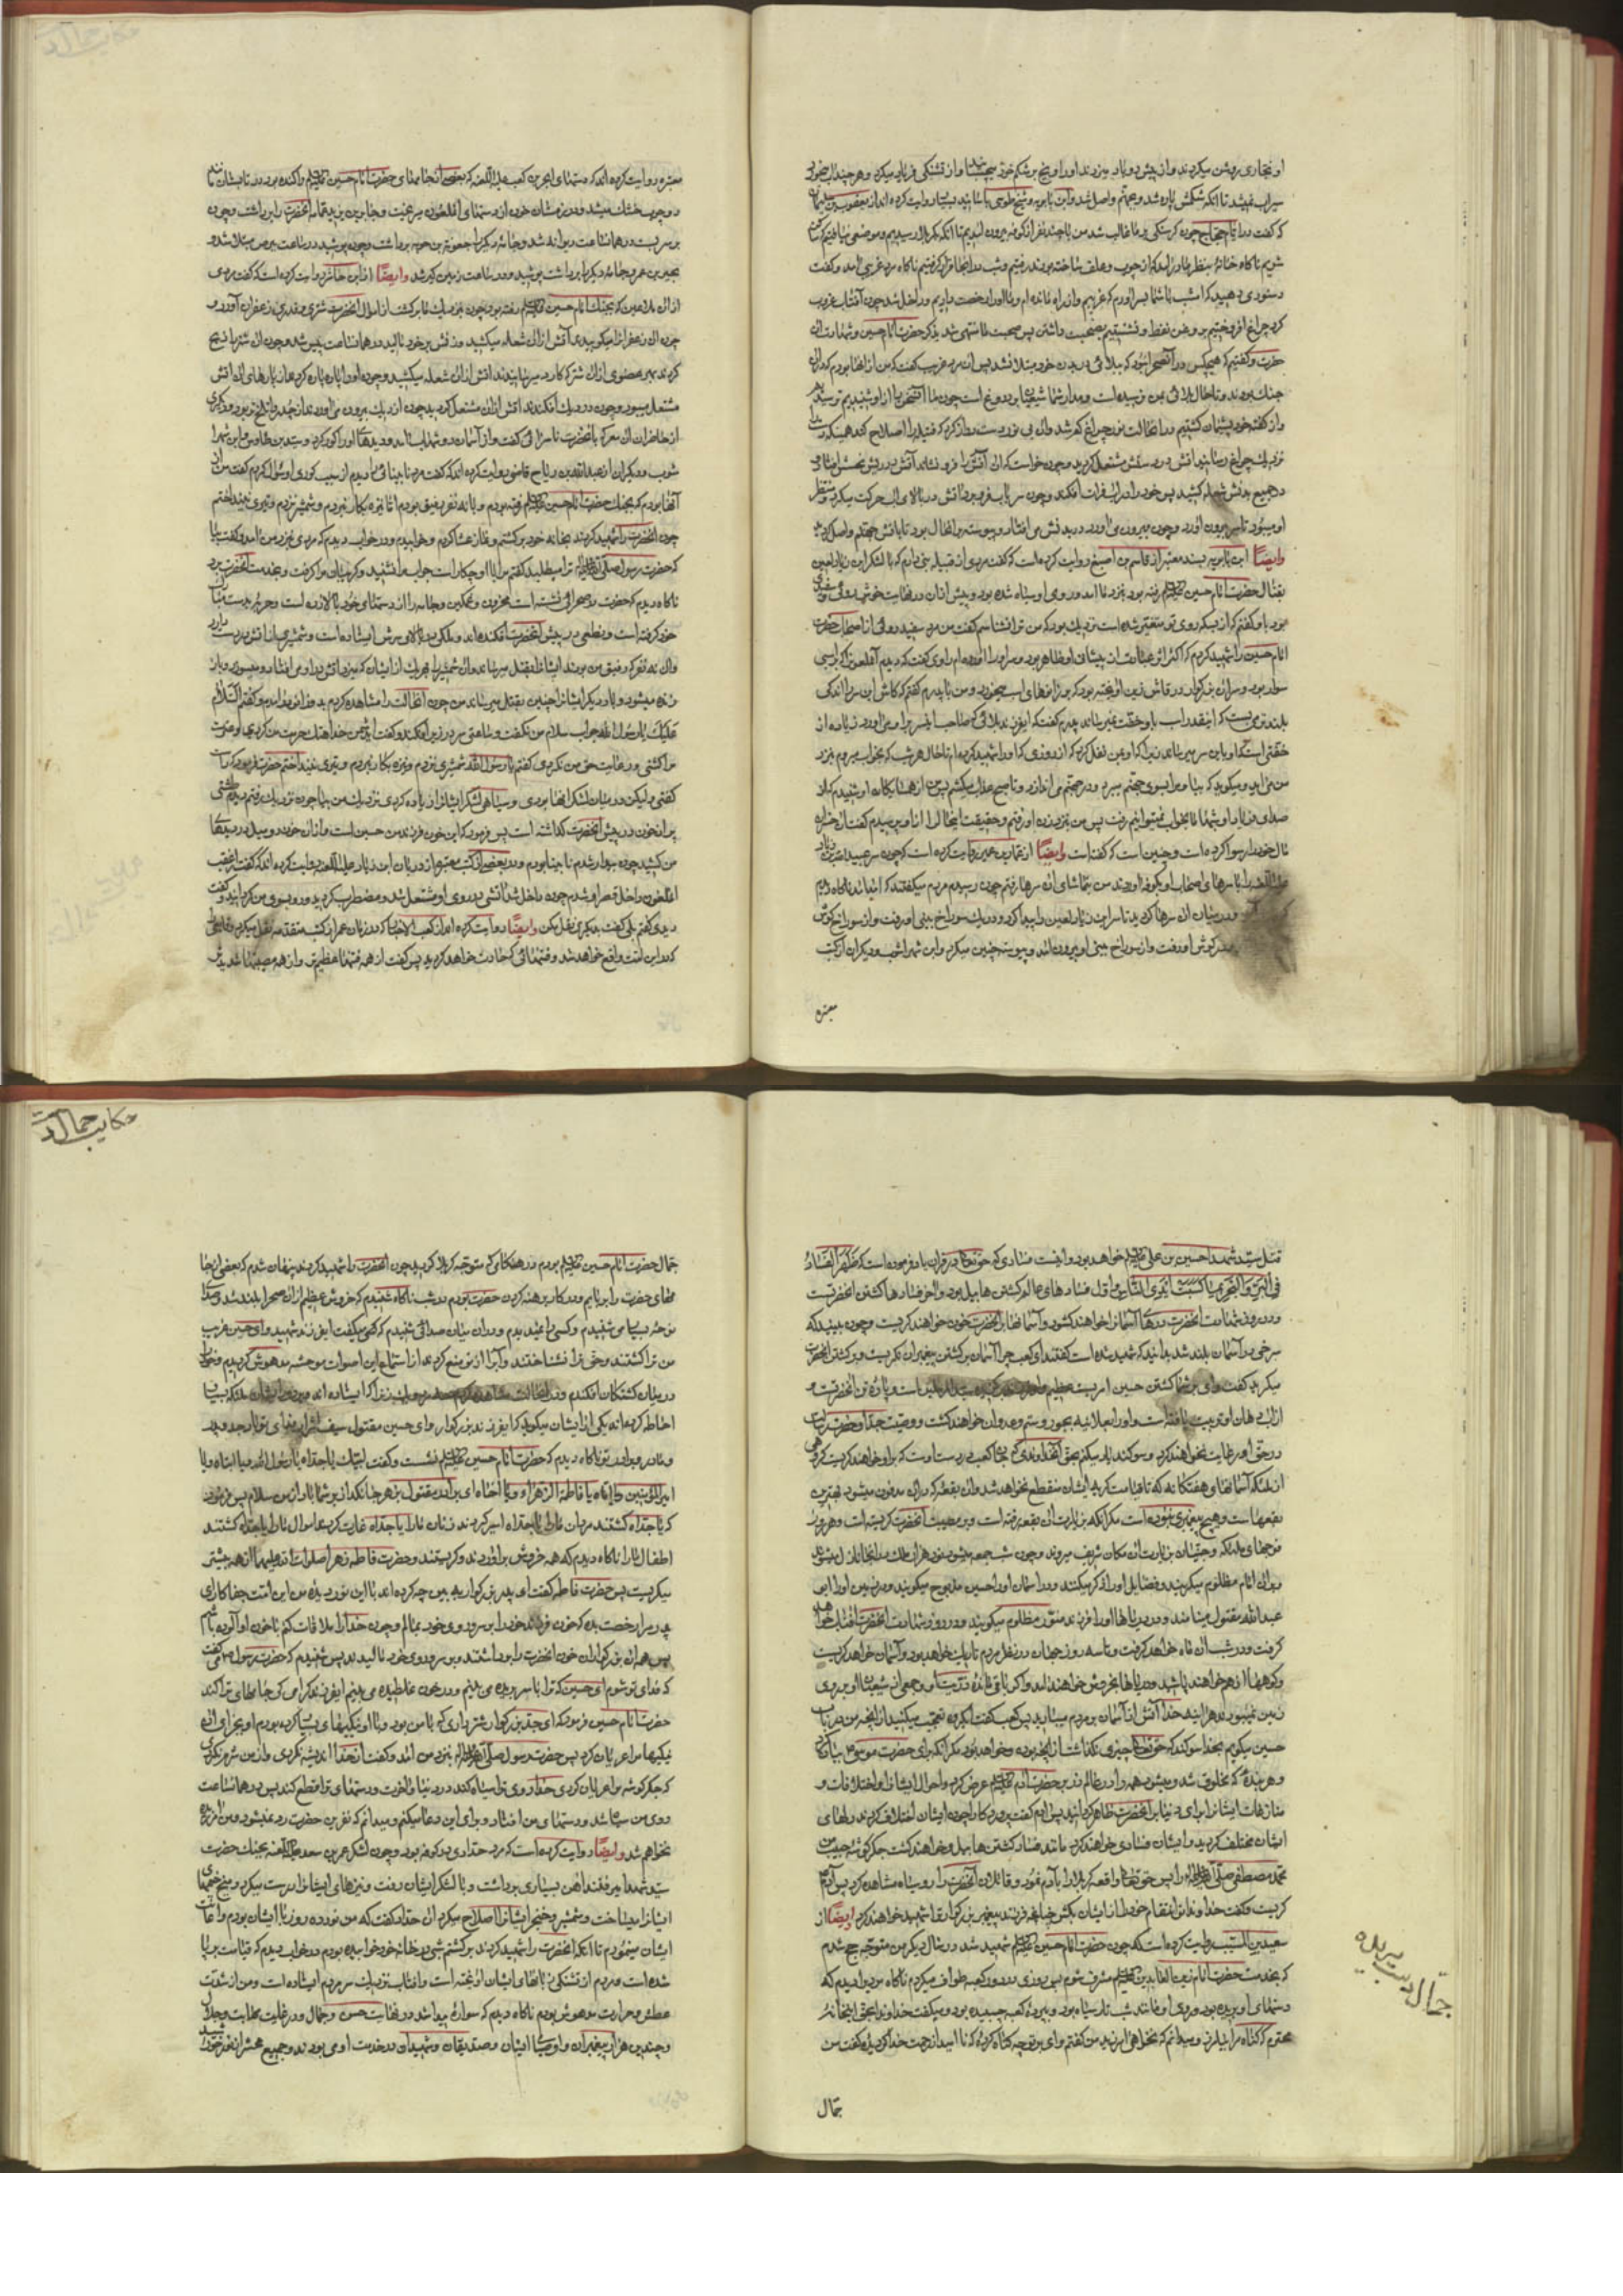 سیراب نمیشد تا آنکه شکمش پاره شد و بجهنم واصل شد و ابن بابویه و شیخ طوسی باسانید بسیار روایت کرده اند از یعقوب بن سلیمان
شویم ناگاه خانهٔ بنظر ما در آمد که از چوب و علف ساخته بودند رفتیم و شب در آنجا قرار گرفتیم ناگاه مرد غریبی آمد و گفت
دستوری دهید که امشب با شما بسر آورم که غریبم و از راه مانده ام و ما او را رخصت دادیم و داخل شد چون آفتاب غروب
کرد چراغ افروختیم بروغن نفط و نشستیم بصحبت داشتن پس صحبت ما منتهی شد بذکر حضرت امام حسین و شهادت آن
حضرت و گفتیم که هیچکس در آن صحرا نبود که ببلائی در بدن خود مبتلا نشد پس آن مرد غریب گفت که من از آنها بودم که در آن
جنك بودند و تا حال بلائی بمن نرسیده است و مدار شما شیعیان بر دروغ است چون ما این سخن را از او شنیدیم ترسیدیم
و از گفته خود پشیمان گشتیم در آن حالت نور چراغ کم شد و آن بی نور دست دراز کرد که فتیله را اصلاح کند همینکه دست را
نزدیك چراغ رسانید آتش در دستش مشتعل گردید و چون خواست که آن آتش را فرو نشاند آتش در ریش نحسش افتاد و
در جمیع بدنش شعله کشید پس خود را در آب فرات افکند و چون سر بآب فرو میبرد آتش در بالای آب حرکت میکرد و منتظر
او میبود تا سر بیرون آورد و چون بیرون می آورد در بدنش می افتاد و پیوسته بر این حال بود تا بآتش جهنم واصل گردید
وایضا ابن بابویه بسند معتبر از قاسم بن اصبغ روایت کرده است که گفت مردی از قبیله بنی دارم که با لشکر ابن زیاد لعین
بقتال حضرت امام حسین رفته بود بنزد ما آمد و روی او سیاه شده بود و پیش از آن در نهایت خوش روئی و سفیدی
امام حسین را شهید کردم که اثر عبادت از پیشانی او ظاهر بود و سر او را آورده ام راوی گفت که دیدم آن ملعون را که بر اسبی
سوار بود و سر آن بزرگوار در قاش زین آویخته بود که بر زانوهای اسب میخورد و من با پدرم گفتم که کاش این سر را اندکی
بلندتر می بست که اینقدر اسب باو خفت نمیرساند پدرم گفت که ای فرزند بلائی که صاحب این سر بر او می آورد زیاده از
من می آید و میگوید که بیا و مرا بسوی جهنم میبرد و در جهنم می اندازد و تا صبح عذاب میکشم پس من از همسایگان او شنیدم که از
صدای فریاد او شبها ما بخواب نمیتوانیم رفت پس من بنزد زن او رفتم و حقیقت این حال را از او پرسیدم گفت آن خسران
مآل خود را رسوا کرده است و چنین است که گفته است وایضا از عمار بن عمیر روایت کرده است که چون سر عبید الله بن زیاد
در میان آن سرها گردید تا سر ابن زیاد لعین را پیدا کرد و در یك سوراخ بینی او رفت و از سوراخ گوش
در گوش او رفت و از سوراخ بینی او بیرون آمد و پیوسته چنین میکرد و ابن شهر آشوب و دیگران از کتب
معتبره
معتبره روایت کرده اند که دستهای ابجر بن کعب علیه اللعنه که بعضی از جامهای حضرت امام حسین را کنده بود در تابستان مانند
دو چوب خشك میشد و در زمستان خون از دستهای آن ملعون میریخت و جابر بن زید عمامه آنحضرت را برداشت و چون
بر سر بست در همانساعت دیوانه شد و جامهٔ دیگر را جعونه بن حویه برداشت و چون پوشید در ساعت ببرص مبتلا شد و
بحیر بن عمرو جامه دیگر را برداشت پوشید و در ساعت زمین گیر شد وایضا از ابن حاشر روایت کرده است که گفت مردی
چون آن زعفران را میکوبیدند آتش از آن شعله میکشید و زنش بر خود مالید در همانساعت پیس شد و چون آن شتر را ذبح
کردند بهر عضوی از آن شتر که کارد میرسانیدند آتش از آن شعله میکشید و چون او را پاره پاره کردند از پارهای آن آتش
مشتعل میبود و چون در دیك افکندند آتش از آن مشتعل گردید و چون از دیك بیرون می آوردند از جدوار تلخ تر بود و دیگری
شوب و دیگران از عبد الله بن رباح قاضی روایت کرده اند که گفت مرد نابینائی را دیدم از سبب کوری او سؤال کردم گفت من از
آنها بودم که بجنك حضرت امام حسین رفته بودم و با نه نفر رفیق بودم اما نیزه بکار نبردم و شمشیر نزدم و تیری نینداختم
چون آنحضرت را شهید کردند بخانه خود برگشتم و نماز عشا کردم و خوابیدم و در خواب دیدم که مردی بنزد من آمد و گفت بیا
که حضرت رسول صلی الله علیه و آله ترا میطلبد گفتم مرا با او چکار است جواب مرا نشنید و گریبان مرا گرفت و بخدمت آنحضرت برد
ناگاه دیدم که حضرت در صحرائی نشسته است محزون و غمگین و جامه را از دستهای خود بالا زده است و حربهٔ بدست مبارك
خود گرفته است و نطعی در پیش آنحضرت افکنده اند و ملکی بر بالای سرش ایستاده است و شمشیری از آتش در دست دارد
و آن نه نفر که رفیق من بودند ایشان را بقتل میرساند و آن شمشیر را بهر یك از ایشان که میزد آتش در او می افتاد و میسوزد و باز
زنده میشود و بار دیگر ایشان را چنین بقتل میرساند من چون آن حالت را مشاهده کردم بدو زانو در آمدم و گفتم السلام
علیك یا رسول الله جواب سلام من نگفت و ساعتی سر در زیر افکند و گفت ای دشمن خدا هتك حرمت من کردی و عترت
مرا کشتی و رعایت حق من نکردی گفتم یا رسول الله شمشیری نزدم و نیزه بکار نبردم و تیری نینداختم حضرت فرمود که راست
گفتی ولیکن در میان لشکر آنها بودی و سیاهی لشکر ایشان را زیاده کردی نزدیك من بیا چون نزدیك رفتم دیدم طشتی
پر از خون در پیش آنحضرت گذاشته است پس فرمود که این خون فرزند من حسین است و از آن خون دو میل در دیدهای
من کشید چون بیدار شدم نابینا بودم و در بعضی از کتب معتبره از دربان ابن زیاد علیه اللعنه روایت کرده اند که گفت از عقب
آن ملعون داخل قصر او شدم چون داخل شد آتشی در روی او مشتعل شد و مضطرب گردید و رو بسوی من گردانید و گفت
دیدی گفتم بلی گفت بدیگری نقل مکن وایضا روایت کرده اند از کعب الاحبار که در زمان عمر از کتب متقدمه نقل میکرد وقایعی
که در این امت واقع خواهد شد و فتنهائی که حادث خواهد گردید پس گفت از همه فتنها عظیم تر و از همه مصیبتها شدیدتر
قتل سید شهدا حسین بن علی خواهد بود و اینست فسادی که حق تعالی در قرآن یاد فرموده است که ظهر الفساد
فی البر و البحر بما کسبت ایدی الناس و اول فسادهای عالم کشتن هابیل بود و آخر فسادها کشتن آنحضرتست
و در روز شهادت آنحضرت درهای آسمان را خواهند گشود و آسمانها بر آنحضرت خون خواهند گریست و چون ببینید که
سرخی در آسمان بلند شد بدانید که شهید شده است گفتند ای کعب چرا آسمان بر کشتن پیغمبران نگریست و بر کشتن آنحضرت
میگرید گفت وای بر شما کشتن حسین امریست عظیم
در حق او رعایت نخواهند کرد و سوگند یاد میکنم بحق آن خداوندی که جان کعب در دست اوست که بر او خواهند گریست گروهی
از ملئکه آسمانهای هفتگانه که تا قیامت گریه ایشان منقطع نخواهد شد و آن بقعه که در آن مدفون میشود بهترین
بقعهاست و هیچ پیغمبری نبوده است مگر آنکه بزیارت آن بقعه رفته است و بر مصیبت آنحضرت گریسته است و هر روز
فوجهای ملئکه و جنیان بزیارت آن مکان شریف میروند و چون شب جمعه میشود نود هزار ملك در آنجا نازل میشوند
و بر آن امام مظلوم میگریند و فضایل او را ذکر میکنند و در آسمان او را حسین مذبوح میگویند و در زمین او را ابی
عبد الله مقتول مینامند و در دریاها او را فرزند منور مظلوم میگویند و در روز شهادت آنحضرت آفتاب خواهد
گرفت و در شب آن ماه خواهد گرفت و تا سه روز جهان در نظر مردم تاریك خواهد بود و آسمان خواهد گریست
و کوهها از هم خواهند پاشید و دریاها بخروش خواهند آمد و اگر باقی ماندهٔ ذریت او و جمعی از شیعیان او بر روی
زمین نمیبودند هر آینه خدا آتش از آسمان بر مردم میبارید پس کعب گفت ای گروه تعجب میکنید از آنچه من در باب
حسین میگویم بخدا سوگند که حق تعالی چیزی نگذاشت از آنچه بوده و خواهد بود مگر آنکه برای حضرت موسی بیان کرد
و هر بندهٔ که مخلوق شده و میشود همه را در عالم ذر بر حضرت آدم عرض کرد و احوال ایشان و اختلافات و
منازعات ایشان را برای دنیا بر آنحضرت ظاهر گردانید پس آدم گفت پروردگارا چون ایشان اختلاف کردند دلهای
ایشان مختلف گردید و ایشان فسادی خواهند کرد مانند فساد کشتن هابیل و خواهند کشت جگر گوشه حبیب من
محمد مصطفی صلی الله علیه و آله را پس حق تعالی واقعه کربلا را بآدم نمود و قاتلان آنحضرت را رو سیاه مشاهده کرد پس آدم
گریست و گفت خداوندا تو انتقام خود را از ایشان بکش چنانچه فرزند پیغمبر بزرگوار ترا شهید خواهند کرد ایضا از
سعید بن المسیب روایت کرده است که چون حضرت امام حسین شهید شد در سال دیگر من متوجه حج شدم
که بخدمت حضرت امام زین العابدین مشرف شوم پس روزی در دور کعبه طواف میکردم ناگاه مردی را دیدم که
دستهای او بریده بود و روی او مانند شب تار سیاه بود و بپردهٔ کعبه چسبیده بود و میگفت خداوندا بحق این خانهٔ
محترم که گناه مرا بیامرز و میدانم که نخواهی آمرزید من گفتم وای بر تو چه گناه کردهٔ که ناامید از رحمت خدا گردیدهٔ گفت من
جمال
جمال دست بریده
حکایت جمال
جمال حضرت امام حسین بودم در هنگامی که متوجه کربلا گردید چون آنحضرت را شهید کردند پنهان شدم که بعضی از جا
مهای حضرت را بربایم و در کار برهنه کردن حضرت بودم در شب ناگاه شنیدم که خروش عظیم از آن صحرا بلند شد و صدای
نوحه بسیار می شنیدم و کسی را نمیدیدم و در آن میان صدائی شنیدم که کسی میگفت ای فرزند شهید و ای حسین غریب
من ترا کشتند و حق ترا نشناختند و آب را از تو منع کردند از استماع این اصوات موحشه مدهوش گردیدم و خود را
در میان کشتگان افکندم و در آن حالت مشاهده کردم
احاطه کرده اند یکی از ایشان میگوید که ای فرزند بزرگوار و ای حسین مقتول
و مادر و برادر تو ناگاه دیدم که حضرت امام حسین نشست و گفت لبیك یا جداه یا رسول الله و یا ابتاه و یا
امیر المؤمنین و یا اماه یا فاطمة الزهراء و یا اخاه ای برادر مقتول بزهر جانگداز بر شما باد از من سلام پس فرمود
که یا جداه کشتند مردان ما را یا جداه اسیر کردند زنان ما را یا جداه غارت کردند اموال ما را یا جداه کشتند
اطفال ما را ناگاه دیدم که همه خروش بر آوردند و گریستند و حضرت فاطمه زهرا صلوات الله علیها از همه بیشتر
میگریست پس حضرت فاطمه گفت ای پدر بزرگوار ببین چه کرده اند با این نور دیدهٔ من این امت جفاکار ای
پدر مرا رخصت بده که خون فرزند خود را بر سر و روی خود بمالم و چون خدا را ملاقات کنم با خون او آلوده باشم
پس همه آن بزرگواران خون آنحضرت را برداشتند و بر سر و روی خود مالیدند پس شنیدم که حضرت رسول می گفت
که فدای تو شوم ای حسین که ترا با سر بریده می بینم و در خون غلطیده می بینم ای فرزند گرامی کی جامهای ترا کند
حضرت امام حسین فرمود که ای جد بزرگوار شتر داری که با من بود و با او نیکیهای بسیار کرده بودم او بجزای آن
نیکیها مرا عریان کرد پس حضرت رسول صلی الله علیه و آله بنزد من آمد و گفت از خدا اندیشه نکردی و از من شرم نکردی
که جگر گوشه مرا عریان کردی خدا روی ترا سیاه کند در دنیا و آخرت و دستهای ترا قطع کند پس در همانساعت
روی من سیاه شد و دستهای من افتاد و برای این دعا میکنم و میدانم که نفرین حضرت رد نمیشود و من آمرزیده
نخواهم شد وایضا روایت کرده است که مرد حدادی در کوفه بود و چون لشکر عمر بن سعد علیه اللعنه بجنك حضرت
سید شهدا میرفتند آهن بسیاری برداشت و با لشکر ایشان رفت و نیزهای ایشان را درست میکرد و میخ خیمهای
ایشان را میساخت و شمشیر و خنجر ایشان را اصلاح میکرد آن حداد گفت که من نوزده روز با ایشان بودم و اعانت
ایشان مینمودم تا آنکه آنحضرت را شهید کردند برگشتم شبی در خانه خود خوابیده بودم در خواب دیدم که قیامت برپا
شده است و مردم از تشنگی زبانهای ایشان آویخته است و آفتاب نزدیك سر مردم ایستاده است و من از شدت
عطش و حرارت مدهوش بودم ناگاه دیدم که سواره پیدا شد در نهایت حسن و جمال و در غایت مهابت و جلال
و چندین هزار پیغمبران و اوصیای ایشان و صدیقان و شهیدان در خدمت او می بودند و جمیع محشر از